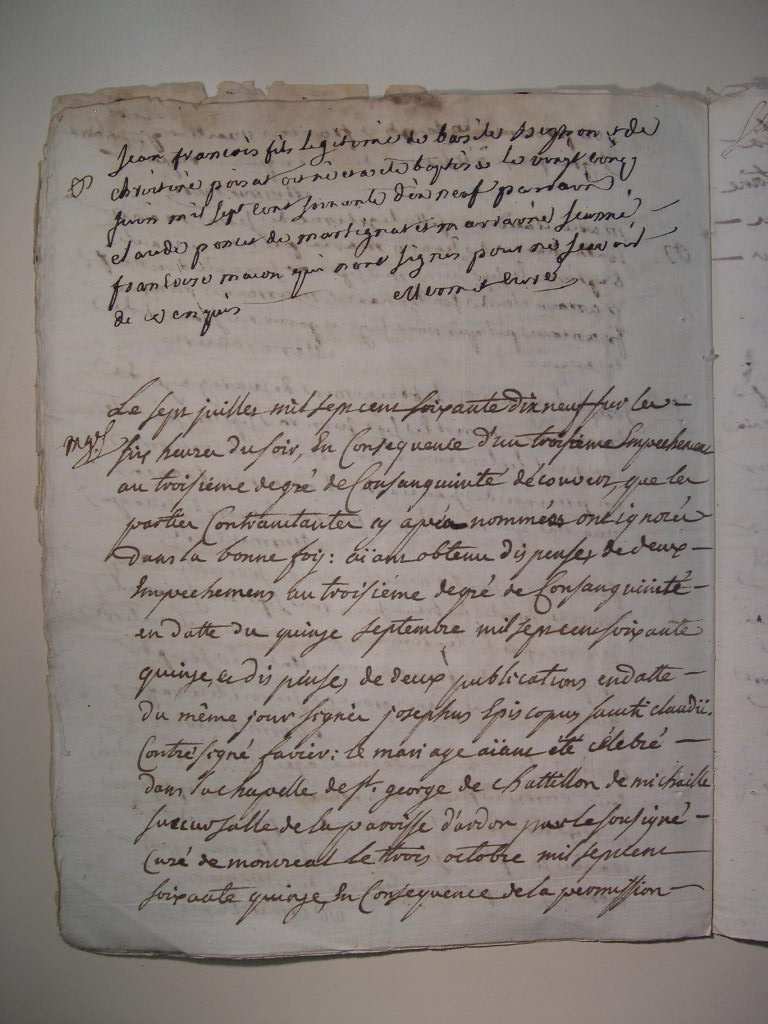 Jean francois fils legitime de basile et de
christine poisat est né et a ete baptisé le vingt cinq
juin mil sept cent soixante dix neuf parrain
claude poncet de martignat et marraine jeanne
francoise macon qui n'ont signés pour ne scavoir
de ce enquis
Le sept juillet mil sept cent soixante dix neuf sur les
mge
six heures du soir, En Consequence d'un troisieme Empechement
au troisieme degré de Consanguinité découvert, que les
parties Contractantes cy après nommées ont ignorée
dans la bonne foy: aïant obtenu dispenses de deux
Empechemens au troisiéme degré de Consanguinité
en datte du quinze septembre mil sept cent soixante
quinze, et dispenses de deux publications en datte
du même jour signée josephus Episcopus sancti claudii.
Contresigné favier: le mariage aïant été célebré
dans la chapelle de st. george de chattillon de michaille
succursalle de la paroisse d'ardon par le soussigné
Curé de montreal le trois octobre mil sept cent
soixante quinze, En Consequence de la permission